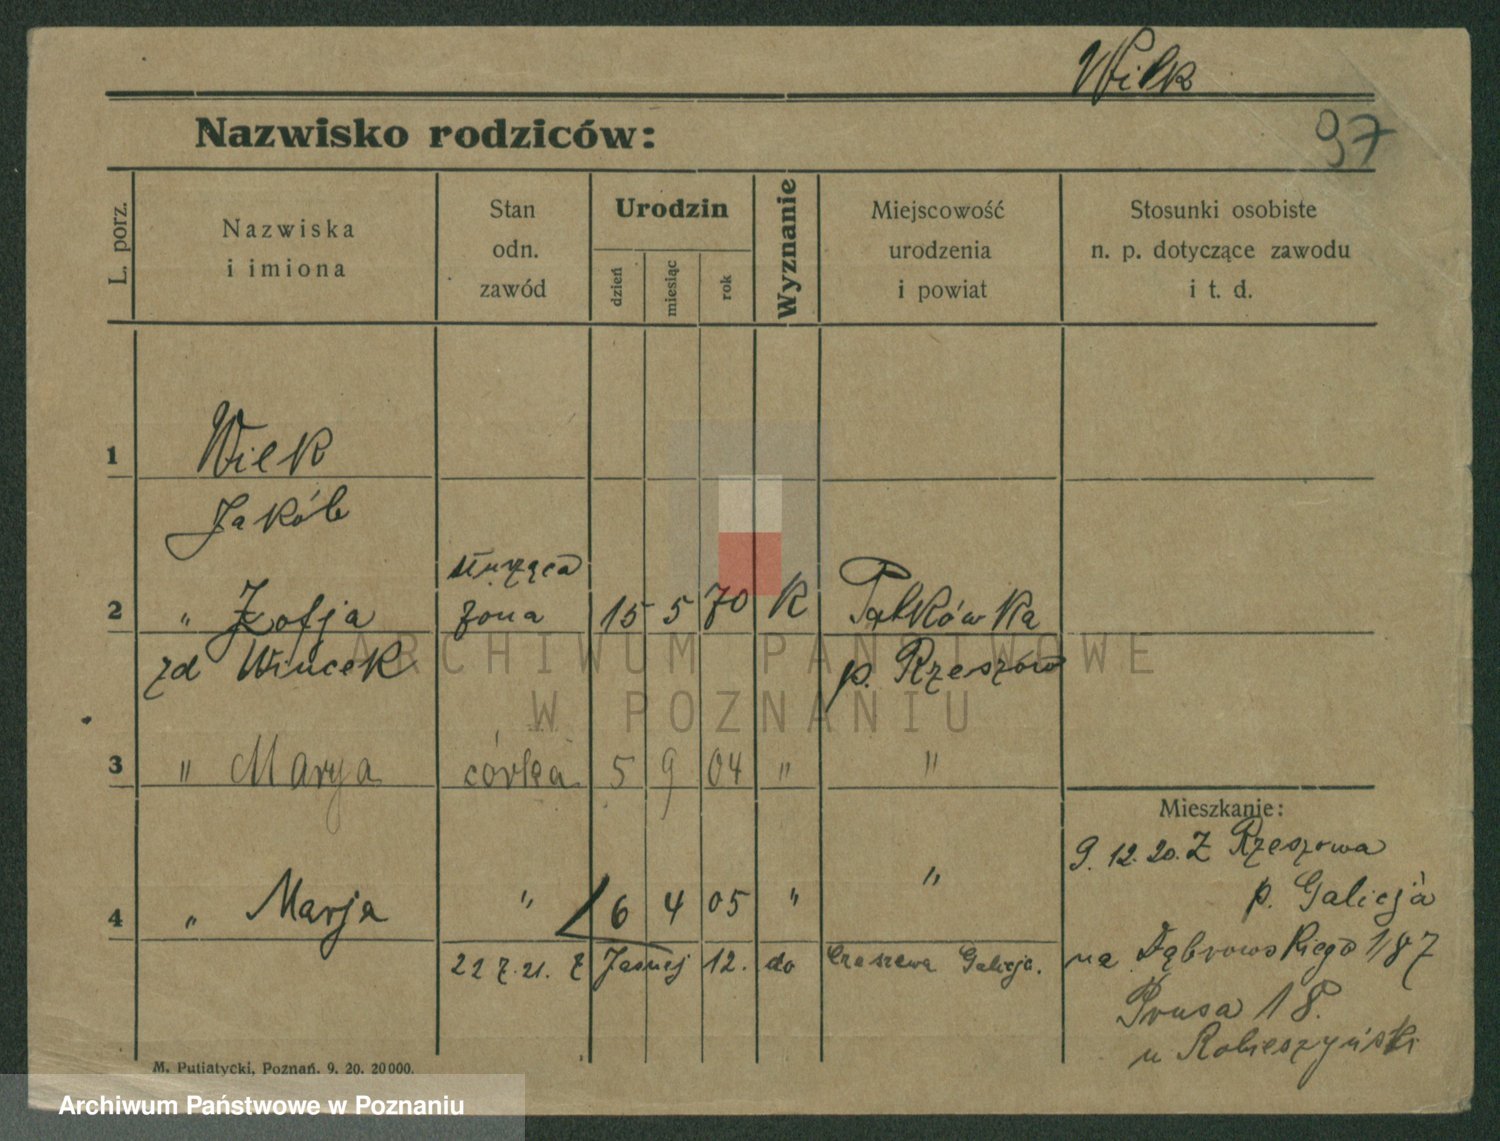 Wilk
Nazwisko rodziców:
97
L. porz.
Nazwiska
i imiona
Stan
odn.
zawód
Urodzin
dzień
miesiąc
rok
Wyznanie
Miejscowość
urodzenia
i powiat
Stosunki osobiste
n. p. dotyczące zawodu
i t. d.
1 Wilk
Jakób
służąca
2 " Zofja żona 15 5 70 K Pałkówka
zd Wincek p. Rzeszów
ARCHIWUM PAŃSTWOWE
W POZNANIU
3 " Marya córka 5 9 04 " "
Mieszkanie:
9. 12. 20. Z Rzeszowa
p. Galicja
4 " Marja " 6 4 05 " "
na Dąbrowskiego 187
22 7. 21. Z Jasnej 12. do Galicja.
Prusa 18.
u
M. Putiatycki, Poznań. 9. 20. 20000.
Archiwum Państwowe w Poznaniu